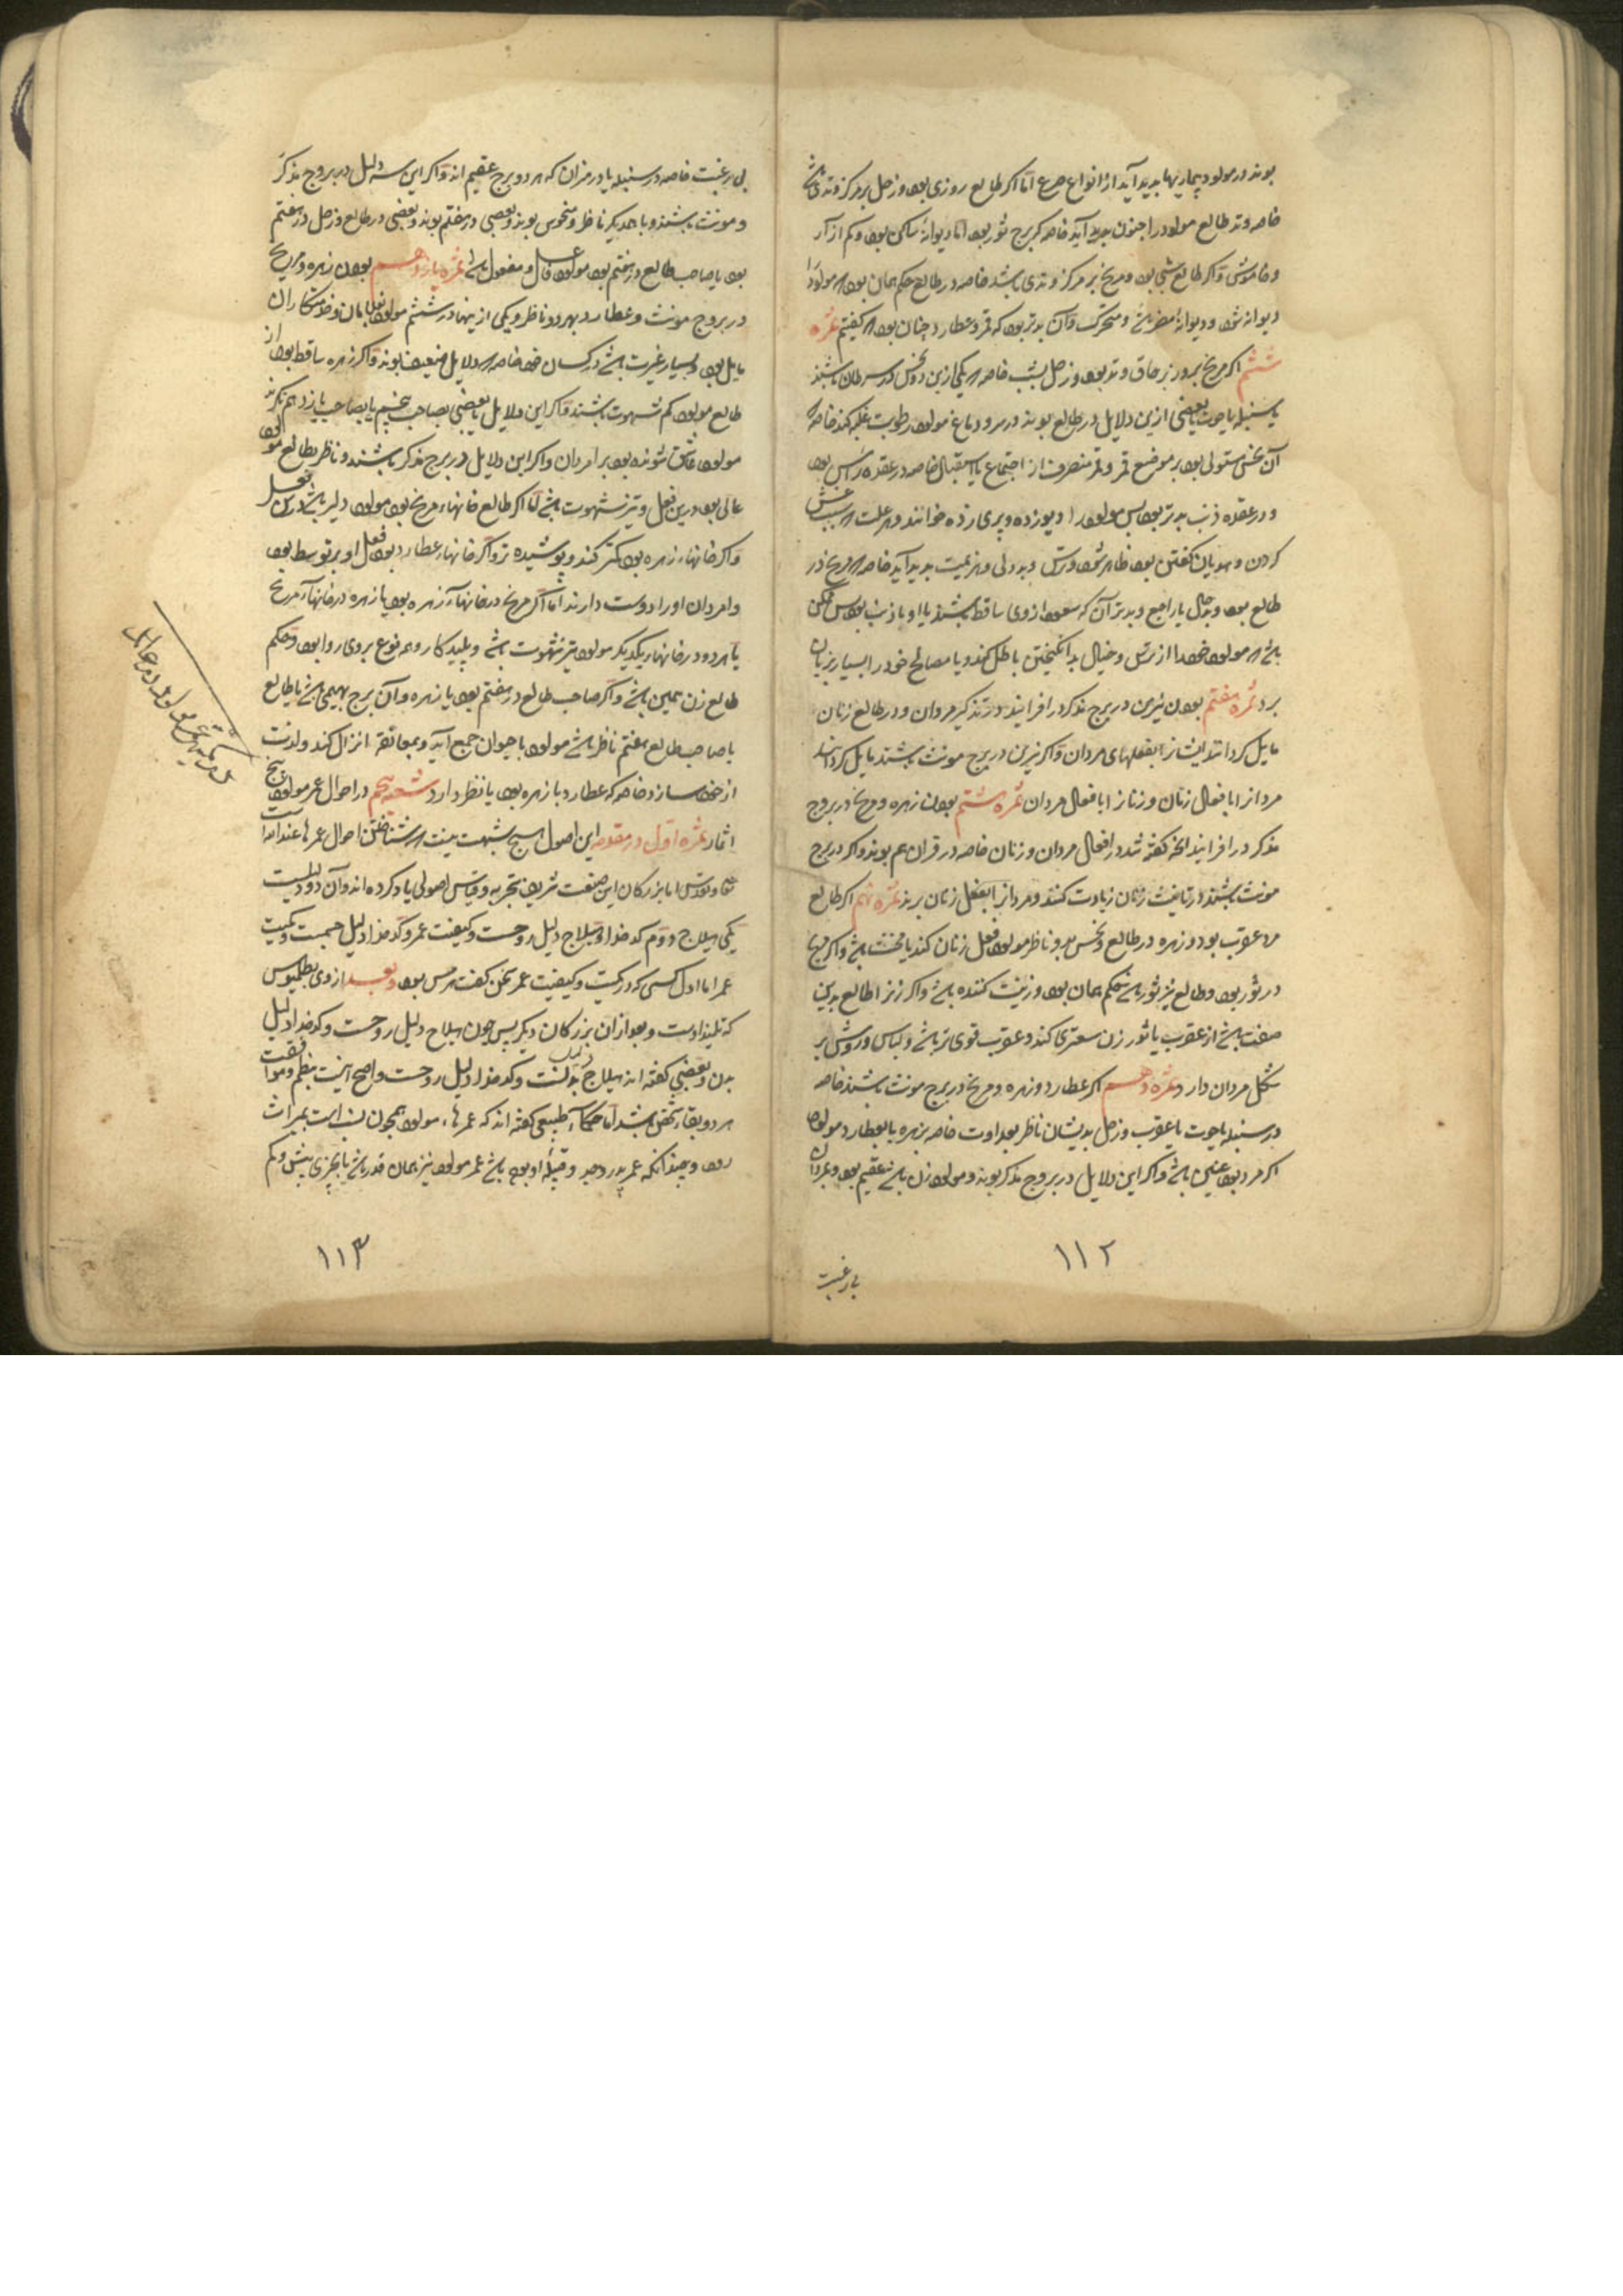 بوند در مولود بیماریها پدید آید از انواع صرع اما اکر طالع روزی بود و زحل بر مرکز وتدی باشد
خاصه وتد طالع مولود را جنون پدید آید خاصه که برج ثور بود اما دیوانهٔ ساکن بود و کم آزار
و خاموش و اکر طالع شبی بود و مریخ بر مرکز وتدی باشد خاصه در طالع حکم همان بود که مولود را
دیوانه شود و دیوانهٔ مضر باشد و متحرک و آن بدتر بود که قمر و عطارد چنان بود که کفتیم ثمره
ششم اکر مریخ بروز بر حاق وتد بود و زحل بشب خاصه که یکی ازین دو نحس در سرطان باشند
یا سنبله یا حوت یا بعضی ازین دلایل در طالع بوند در سر و دماغ مولود رطوبت غلبه کند خاصه که
آن نحس مستولی بود بر موضع قمر و قمر منصرف از اجتماع یا استقبال خاصه در عقدهٔ راس بود
و در عقده ذنب بدتر بود پس مولود را دیوزده و پری زده خوانند و هر علت که بسبب غش
کردن و هذیان کفتن بود ظاهر شود و ترس و بددلی و هزیمت پدید آید خاصه که مریخ در
طالع بود وبال یا راجع و بدتر آن که سعود از وی ساقط باشند یا او با ذنب بود پس ممکن
باشد که مولود خود را از ترس و خیال بد انکیختن باطل کند و یا مصالح خود را بسیار بزیان
برد ثمره هفتم بودن نیرین در برج مذکر در افزایند در تذکیر مردان و در طالع زنان
مایل کردانند ایشانرا بفعلهای مردان و اکر نیرین در برج مونث باشند مایل کردانند
مردانرا بافعال زنان و زنانرا بافعال مردان ثمره هشتم بودن زهره و مریخ در بروج
مذکر در افزایند آنچه کفته شد در افعال مردان و زنان خاصه در قران هم بوند و اکر در برج
مونث باشند در تانیث زنان زیادت کنند و مردانرا بفعل زنان برند ثمره نهم اکر طالع
مرد عقرب بود و زهره در طالع و نحس بدو ناظر مولود فعل زنان کند یا مخنث باشد و اکر مریخ
در ثور بود و طالع نیز ثور باشد حکم همان بود و زینت کننده باشد و اکر زنرا طالع بدین
صفت باشد از عقرب یا ثور زن سعتری کند و عقرب قوی تر باشد و لباس و روش بر
شکل مردان دارد ثمره دهم اکر عطارد و زهره و مریخ در برج مونث باشند خاصه
در سنبله یا حوت یا عقرب و زحل بدیشان ناظر بعداوت خاصه بزهره یا بعطارد مولود
اکر مرد بود عنین باشد و اکر این دلایل در بروج مذکر بوند و مولود زن باشد عقیم بود و بمردان
١١٢
بی رغبت
بی رغبت خاصه در سنبله یا در میزان که هر دو برج عقیم اند و اکر این سه دلیل در بروج مذکر
و مونث باشند و با هم دیکر ناظر و منحوس بوند و بعضی در هفتم بوند و بعضی در طالع و زحل در هفتم
بود یا صاحب طالع در هفتم بود مولود فاعل و مفعول باشد ثمره یازدهم بودن زهره و مریخ
در بروج مونث و عطارد بهر دو ناظر و یکی ازینها در ششم مولود بغلامان و خدمتکاران
مایل بود و بسیار غیرت باشد در کسان خود خاصه که دلایل ضعیف بوند و اکر زهره ساقط بود از
طالع مولود کم شهوت باشند و اکر این دلایل یا بعضی بصاحب پنجم یا بصاحب یازدهم نکرند
مولود عاشق شونده بود بر امردان و اکر این دلایل در برج مذکر باشند و ناظر بطالع مولود
عالی بود درین فعل و تیز شهوت باشد اما اکر طالع خانهاء مریخ بود مولود دلیر باشد درین فعل
و اکر خانهاء زهره بود کمتر کند و پوشیده تر و اکر خانهاء عطارد بود فعل او بر توسط بود
و امردان او را دوست دارند اما اکر مریخ در خانهاء زهره بود یا زهره در خانهاء مریخ
یا هر دو در خانهاء یکدیکر مولود تیز شهوت باشد و پلید کار و همه نوع بر وی روا بود و حکم
طالع زن همین باشد و اکر صاحب طالع در هفتم بود یا زهره و آن برج بهیمی باشد یا طالع
یا صاحب طالع بهفتم ناظر باشد مولود با حیوان جمع آید و بمعانقه انزال کند و لذت
از خود سازد خاصه که عطارد با زهره بود یا نظر دارد شعبه پنجم در احوال عمر مولود پنج
اثمار ثمره اول در مقدمه این اصول هیچ شبهت نیست که شناختن احوال عمرها عند الله است
تعالی و تقدس اما بزرکان این صنعت شریف بتجربه و قیاس اصولی یاد کرده اند و آن دو دلیلست
یکی هیلاج و دوم کدخدا و هیلاج دلیل روحست و کیفیت عمر و کدخدا دلیل جسمست و کمیت
عمر اما اول کسی که در کمیت و کیفیت عمر سخن کفت هرمس بود و بعد از وی بطلمیوس
که تلمیذ اوست و بعد از آن بزرکان دیکر پس چون هیلاج دلیل روحست و کدخدا دلیل
بدن و بعضی کفته اند هیلاج دلیل بدنست و کدخدا دلیل روحست و اصح اینست بنظم و موافقت
هر دو بقاء شخص باشد اما حکماء طبیعی کفته اند که عمرهاء مولود همچون نسب است بمیراث
رود و بچندانکه عمر پدر و جد و قبیلهٔ او بوده باشد عمر مولود نیز همان قدر باشد یا بچیزی بیش و کم
١١٣